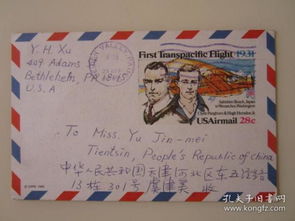 Y. H. Xu
449 Adams
Bethlehem, PA 18015
U.S.A
First Transpacific Flight 1931
Sabishiro Beach, Japan
to Wenatchee, Washington
Clyde Pangborn & Hugh Herndon, Jr.
USAirmail 28c
To Miss. Yu Jin-mei
Tientsin, People's Republic of China
中华人民共和国天津河北区
13栋301号 收
孔夫子旧书网